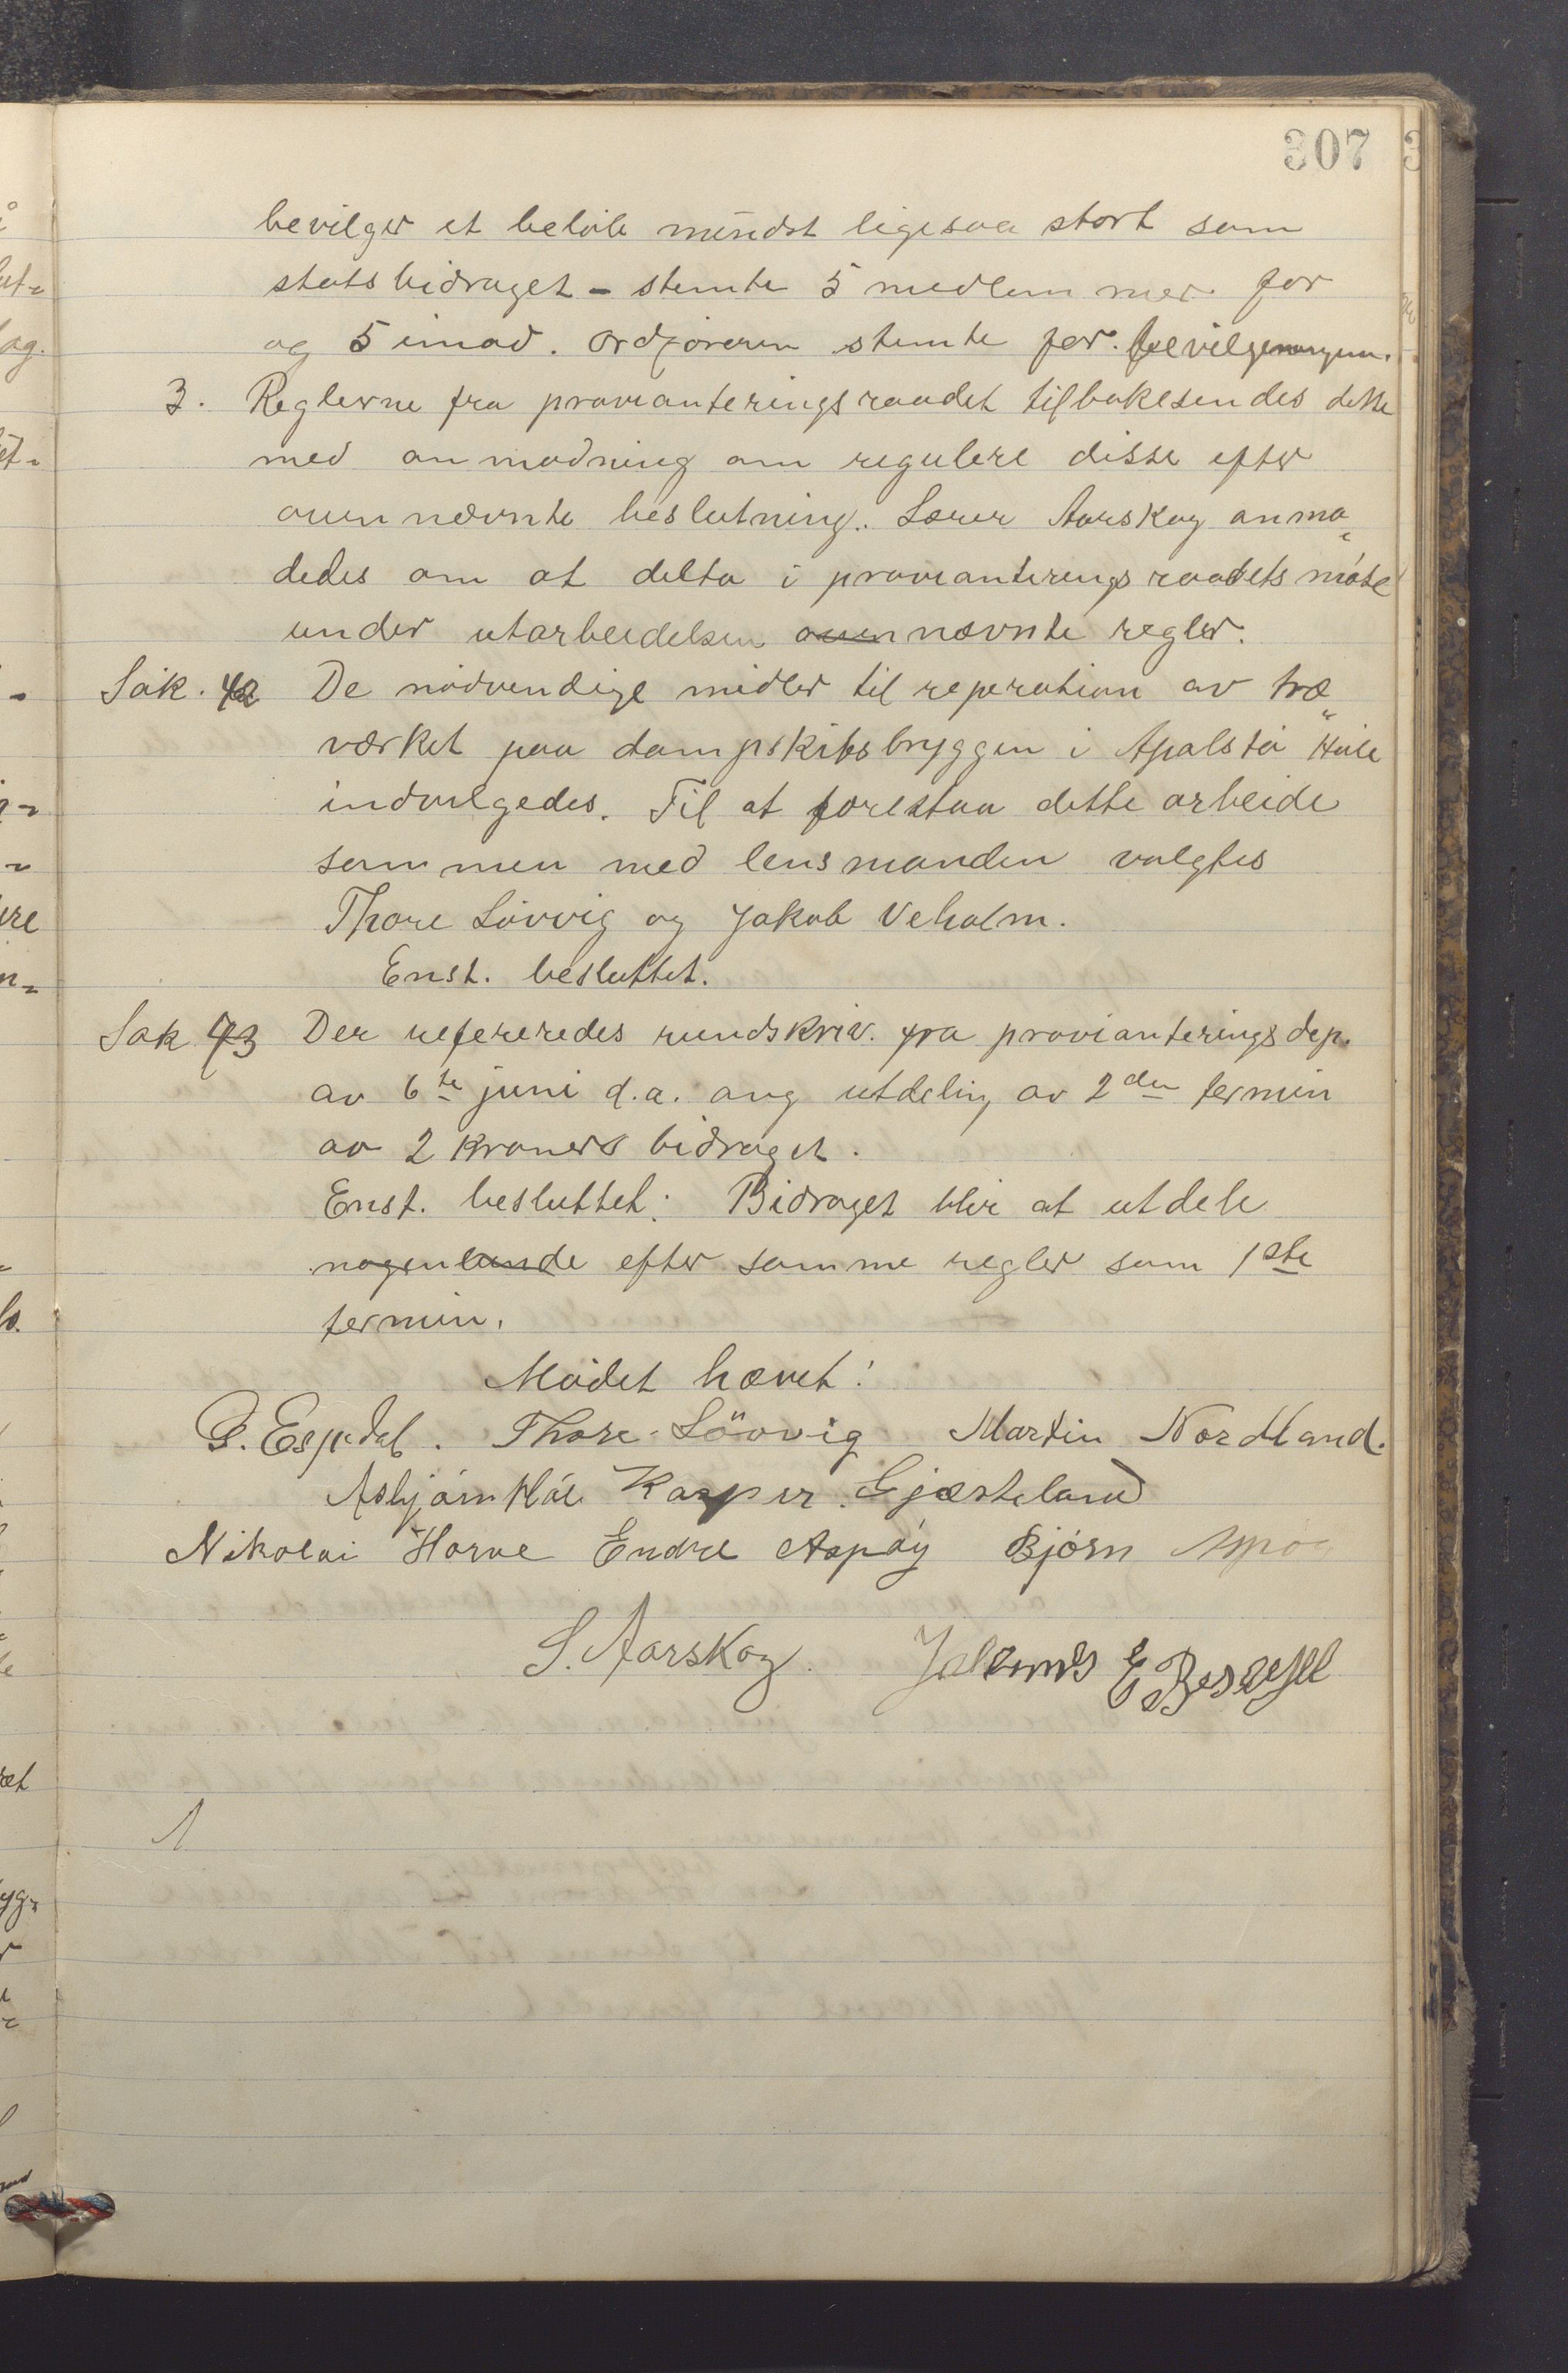 307
bevilger et beløb mindst ligesaa stort som
statsbidraget - stemte 5 medlemmer for
og 5 imod. Ordføreren stemte for bevilgningen.
3. Reglerne fra provianteringsraadet tilbakesendes dette
med anmodning om regulere disse efter
ovennævnte beslutning. Lærer Aarskog anmo
dedes om at delta i provianteringsraadets møte
under utarbeidelsen ovennævnte regler.
Sak. 42 De nødvendige midler til reperation av træ
værket paa dampskibsbryggen i Apalstø
indvilgedes. Til at forestaa dette arbeide
sammen med lensmanden valgtes
Thore Løvvig og Jakob Veholm.
Enst. besluttet.
Sak 43 Der refereredes rundskriv. fra provianteringsdep.
av 6te juni d.a. ang utdeling av 2den termin
av 2 kroners bidraget.
Enst. besluttet: Bidraget blir at utdele
nogenlunde efter samme regler som 1ste
termin.
Mødet hævet!
G. Espedal. Thore Lövvig Martin Nordland.
Asbjørn Kasper Gjæsteland
Nikolai Horve Endre Aspøy Bjørn Aspøy
S. Aarskog. Johannes E